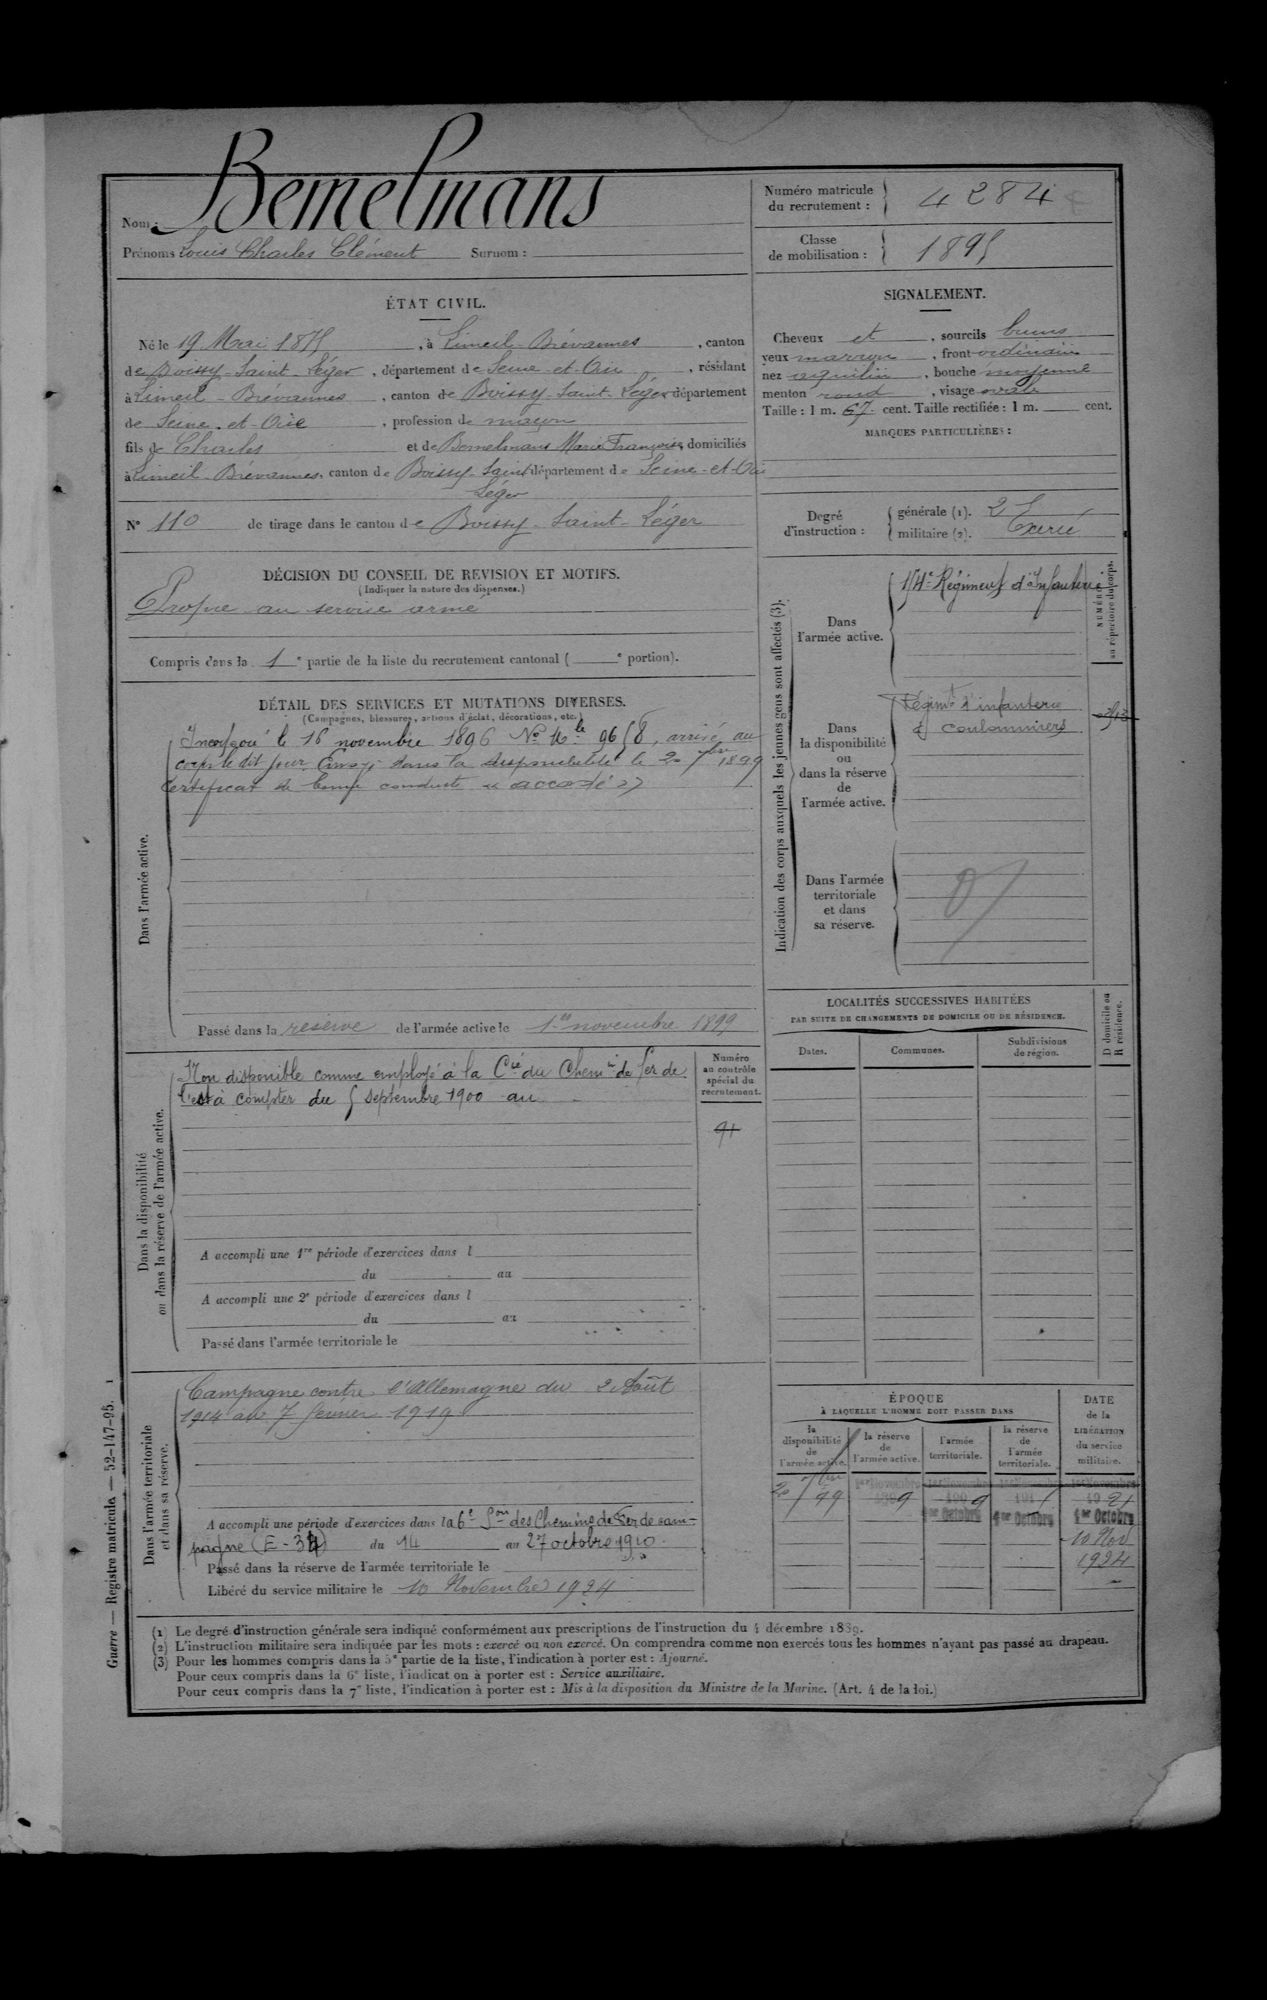 Nom : Bemelmans
Prénoms Louis Charles Clément Surnom :
Numéro matricule du recrutement : 4284
Classe de mobilisation : 1895
ÉTAT CIVIL.
Né le 19 Mai 1875, à Limeil-Brévannes, canton
de Boissy-Saint-Léger, département de Seine-et-Oise, résidant
à Limeil-Brévannes, canton de Boissy-Saint-Léger département
de Seine-et-Oise, profession de maçon
fils de Charles et de Bemelmans Marie Françoise, domiciliés
à Limeil-Brévannes, canton de Boissy-Saint département de Seine-et-Oise
Léger
N° 110 de tirage dans le canton de Boissy-Saint-Léger
SIGNALEMENT.
Cheveux et, sourcils bruns
yeux marron, front ordinaire
nez aquilin, bouche moyenne
menton rond, visage ovale
Taille : 1 m. 67 cent. Taille rectifiée : 1 m. cent.
MARQUES PARTICULIÈRES :
Degré d'instruction : générale (1). 2
militaire (2). Exercé
DÉCISION DU CONSEIL DE REVISION ET MOTIFS.
(Indiquer la nature des dispenses.)
Propre au service armé
Compris dans la 1e partie de la liste du recrutement cantonal ( e portion).
DÉTAIL DES SERVICES ET MUTATIONS DIVERSES.
(Campagnes, blessures, actions d'éclat, décorations, etc.)
Dans l'armée active.
Incorporé le 16 novembre 1896 No Mle 9658, arrivé au
corps le dit jour. Envoyé dans la disponibilité le 20 7bre 1899
Certificat de bonne conduite « accordé »
Passé dans la réserve de l'armée active le 1er novembre 1899
Indication des corps auxquels les jeunes gens sont affectés (3).
NUMÉRO au répertoire du corps.
Dans l'armée active.
154e Régiment d'Infanterie
Dans la disponibilité ou dans la réserve de l'armée active.
Régimt d'infanterie
d Coulommiers
Dans l'armée territoriale et dans sa réserve.
LOCALITÉS SUCCESSIVES HABITÉES
PAR SUITE DE CHANGEMENTS DE DOMICILE OU DE RÉSIDENCE.
Dates. Communes. Subdivisions de région. D domicile ou R résidence.
Dans la disponibilité ou dans la réserve de l'armée active.
Numéro au contrôle spécial du recrutement.
91
Non disponible comme employé à la Cie du Chemin de fer de
l'est à compter du 5 septembre 1900 au
A accompli une 1re période d'exercices dans l
du au
A accompli une 2e période d'exercices dans l
du au
Passé dans l'armée territoriale le
Dans l'armée territoriale et dans sa réserve.
Campagne contre l'Allemagne du 2 Août
1914 au 7 février 1919
A accompli une période d'exercices dans la 6e Son des Chemins de Fer de cam-
pagne (E-34) du 14 au 27 octobre 1910.
Passé dans la réserve de l'armée territoriale le
Libéré du service militaire le 10 Novembre 1924
ÉPOQUE
À LAQUELLE L'HOMME DOIT PASSER DANS
la disponibilité de l'armée active. la réserve de l'armée active. l'armée territoriale. la réserve de l'armée territoriale.
DATE de la LIBÉRATION du service militaire.
20 7bre 99
1er Novembre 1899
1er Novembre 1909
1er Octobre
1er Octobre
1er Novembre 1921
1er Octobre
10 Nov
1924
(1) Le degré d'instruction générale sera indiqué conformément aux prescriptions de l'instruction du 4 décembre 1889.
(2) L'instruction militaire sera indiquée par les mots : exercé ou non exercé. On comprendra comme non exercés tous les hommes n'ayant pas passé au drapeau.
(3) Pour les hommes compris dans la 5e partie de la liste, l'indication à porter est : Ajourné.
Pour ceux compris dans la 6e liste, l'indication à porter est : Service auxiliaire.
Pour ceux compris dans la 7e liste, l'indication à porter est : Mis à la disposition du Ministre de la Marine. (Art. 4 de la loi.)
Guerre — Registre matricule. — 52-147-95. 1